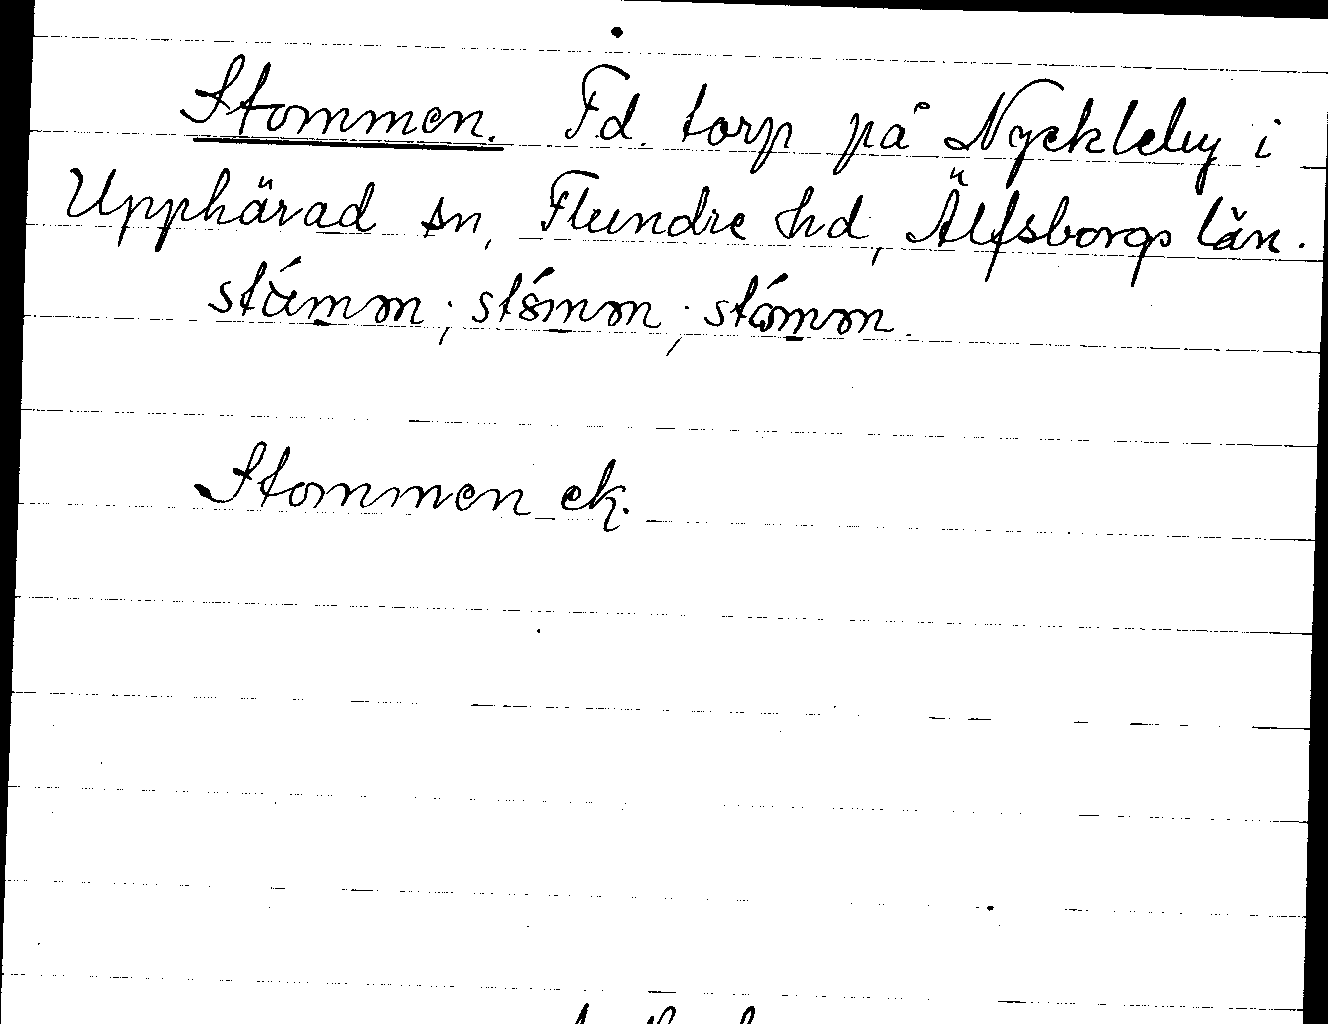 Stommen. Fd. torp på Nyckleby i
Upphärad sn, Flundre hd, Älfsborgs län.
Stommen ek.